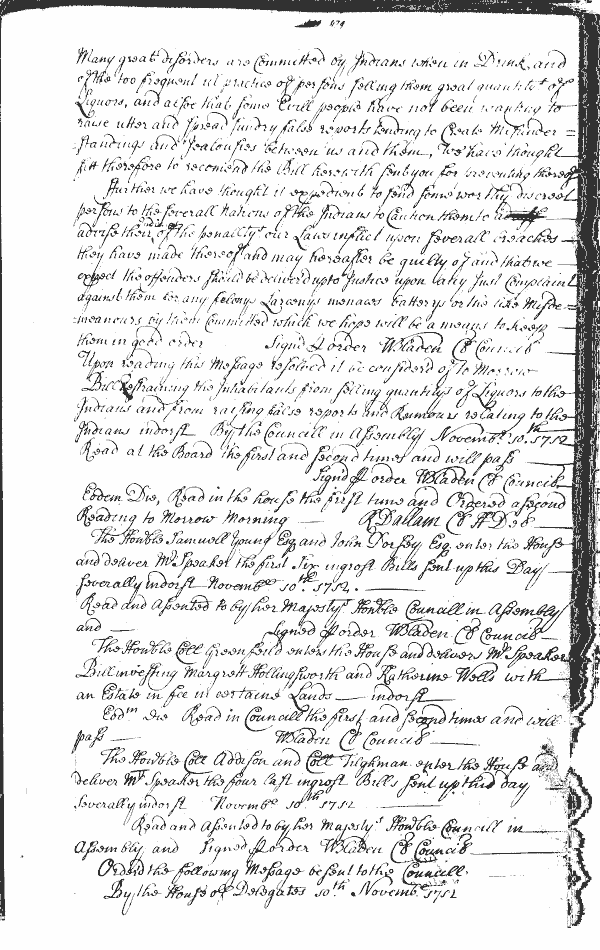 Many great disorders are Committed by Indians when in Drink and
of the too frequent ill practice of persons selling them great quantitys of
Liquors, and alsoe that some Evill people have not been wanting to
raise utter and Spread Sundry false reports tending to Create Misunder=
standings and Jealousies between us and them, We have thought
fitt therefore to recomend the Bill herewith sent you for preventing thereof
Further we have thought it expedient to send some worthy discreet
persons to the severall Nations of the Indians to Caution them to
advise them of the penaltys our Laws inflict upon severall breaches
they have made thereof and may hereafter be guilty of and that we
expect the offenders should be deliverd up to Justice upon any Just Complaint
against them for any felonys Larcenys menaces batterys or the like Misde=
meanours by them Committed which we hope will be a means to keep
them in good order Signd p order WBladen Cl Councill
Upon reading this Message resolved it be considerd of to Morrow
Bill restraining the Inhabitants from selling quantitys of Liquors to the
Indians and from raising false reports and Rumours relating to the
Indians indorst By the Councill in Assembly Novembr 10th 1712
Read at the Board the first and second times and will pass
Signd p order WBladen Cl Councill
Eodem Die, Read in the house the first time and Ordered a second
Reading to Morrow Morning R Dallam Cl H Del
The Honble Samuell Young Esq and John Dorsey Esq. enter the House
and deliver Mr Speaker the first Six ingrost Bills sent up this Day
severally indorst Novembr 10th 1712.
Read and Assented to by her Majestys Honble Councill in Assembly
and Signed p order WBladen Cl Councill
The Honble Coll Greenfield enters the House and delivers Mr Speaker
Bill investing Margrett Hollingsworth and Katherine Wells with
an Estate in fee in certaine Lands indorst
Eodm die Read in Councill the first and second times and will
pass WBladen Cl Councill
The Honble Coll Addison and Coll Tilghman enter the House and
deliver Mr Speaker the four last ingrost Bills sent up this day
severally indorst Novembr 10th 1712
Read and Assented to by her Majestys Honble Councill in
Assembly and Signed p order WBladen Cl Councill
Orderd the following Message be sent to the Councill.
By the House of Delegates 10th Novembr 1712